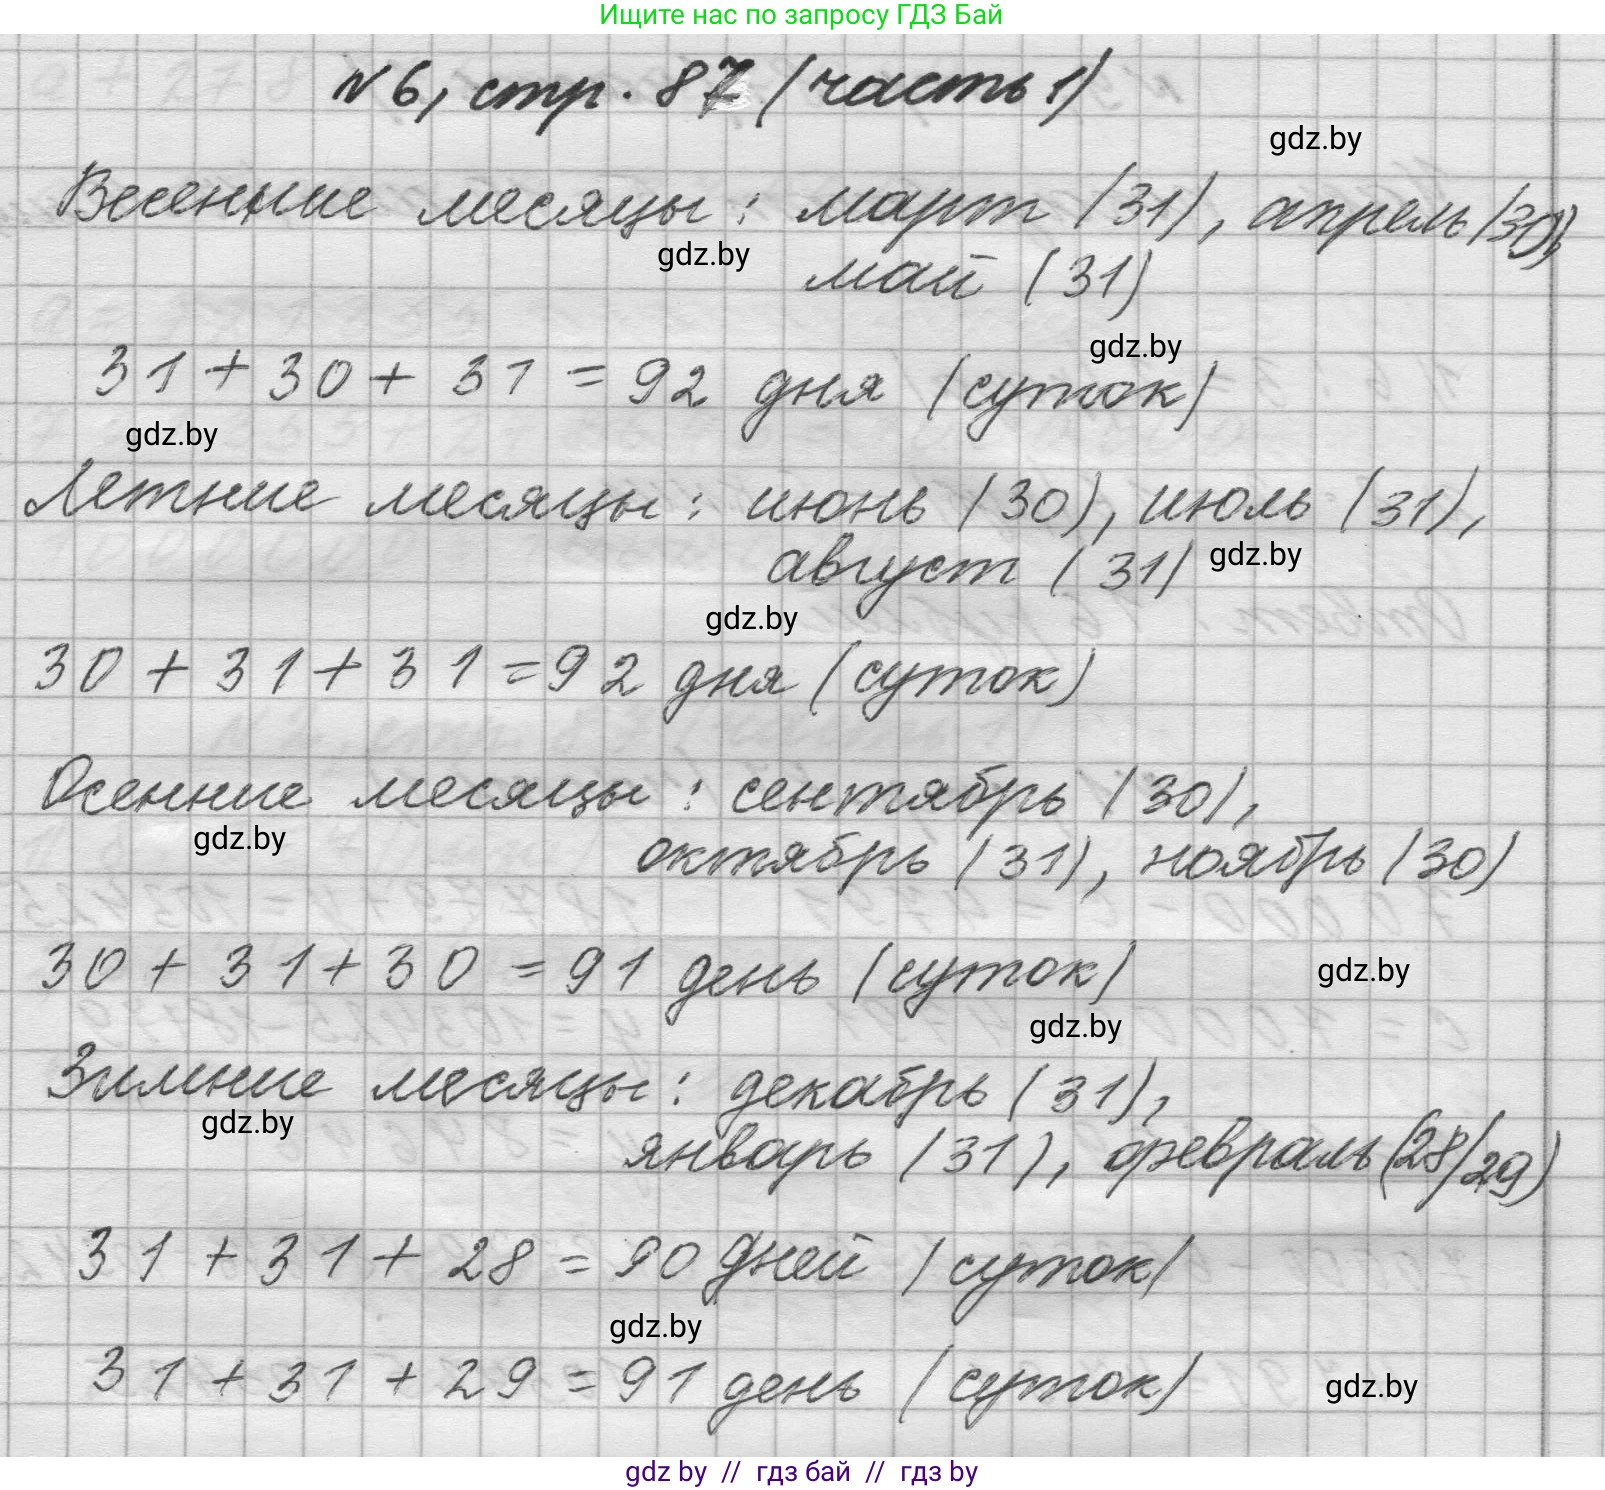 Ищите нас по запросу ГДЗ Бай
№6, стр. 87 (часть 1)
gdz.by
Весенние месяцы: март (31), апрель (30),
gdz.by
май (31)
gdz.by
31 + 30 + 31 = 92 дня (суток)
gdz.by
Летние месяцы: июнь (30), июль (31),
август (31) gdz.by
gdz.by
30 + 31 + 31 = 92 дня (суток)
Осенние месяцы: сентябрь (30),
gdz.by
октябрь (31), ноябрь (30)
30 + 31 + 30 = 91 день (суток) gdz.by
gdz.by
Зимние месяцы: декабрь (31),
gdz.by
январь (31), февраль (28/29)
31 + 31 + 28 = 90 дней (суток)
gdz.by
31 + 31 + 29 = 91 день (суток) gdz.by
gdz by // гдз бай // гдз by